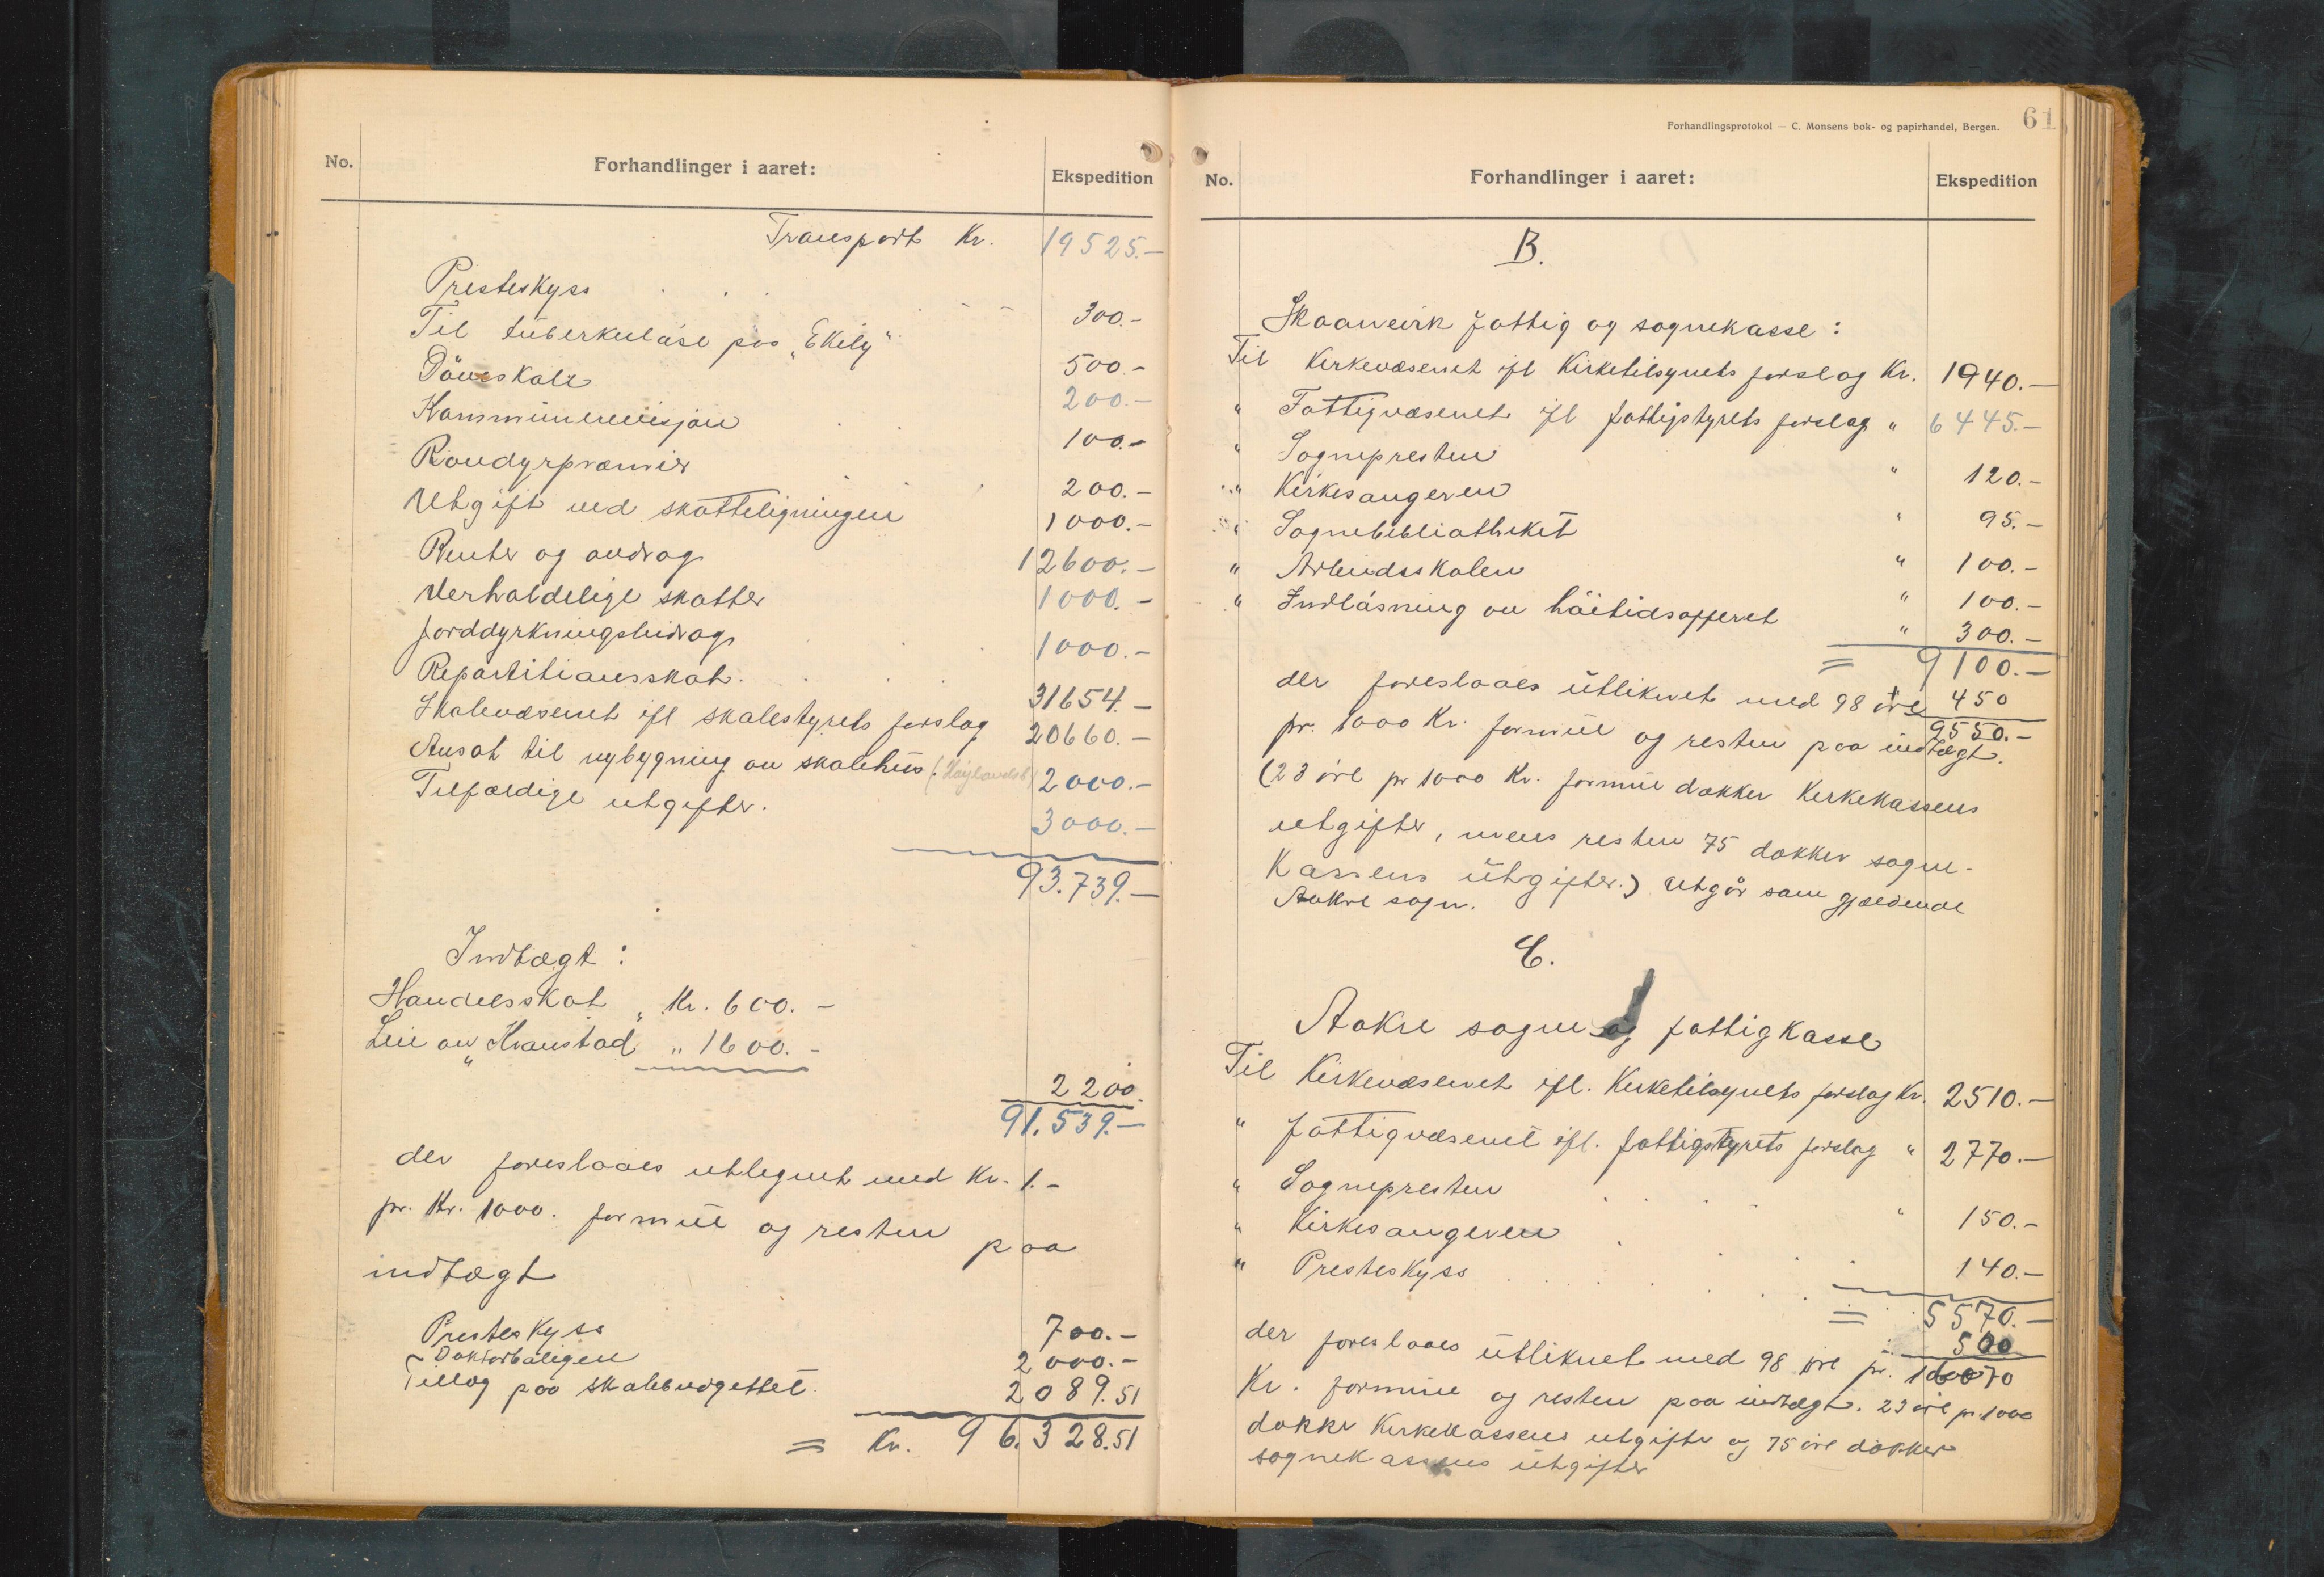 No. Forhandlinger i aaret: Ekspedition
Transport Kr. 19525.-
Presteskyss 300.-
Til tuberkuløse paa "Ekely" 500.-
Døveskole 200.-
Kommunerevisjon 100.-
Rovdyrpræmier 200.-
Utgift ved skatteligningen 1000.-
Renter og avdrag 12600.-
Uerholdelige skatter 1000.-
Jorddyrkningsbidrag 1000.-
Repartitionsskat 31654.-
Skolevæsenet ifl skolestyrets forslag 20660.-
Ansat til nybygning av skolehus (Høylandsb) 2000.-
Tilfældige utgifter. 3000.-
93.739.-
Indtægt:
Handelsskat " Kr. 600.-
Leie av "Kvanstad " 1600.-
2200.
91.539.-
der foreslaaes utlignet med Kr. 1.-
pr. Kr. 1000. formue og resten paa
indtægt
Presteskyss 700.-
Doktorboligen 2000.-
Tillæg paa skolebudgettet. 2089.51
= Kr. 96.328.51
Forhandlingsprotokol — C. Monsens bok- og papirhandel, Bergen. 61
No. Forhandlinger i aaret: Ekspedition
B.
Skaanevik fattig og sognekasse:
Til Kirkevæsenet ifl Kirketilsynets forslag Kr. 1940.-
" Fattigvæsenet ifl fattigstyrets forslag " 6445.-
" Sognepresten " 120.-
" Kirkesangeren " 95.-
" Sognebibliotheket " 100.-
" Arbeidsskolen " 100.-
" Indløsning av høitidsofferet " 300.-
= 9100.-
der foreslaaes utliknet med 98 øre + 450
9550.-
pr. 1000 Kr. formue og resten paa indtægt.
(23 øre pr 1000 Kr. formue dækker Kirkekassens
utgifter, mens resten 75 dækker sogne-
kassens utgifter.) Utgår som gjældende
Aakre sogn.
C.
Aakre sogne og fattigkasse
Til Kirkevæsenet ifl. Kirketilsynets forslag Kr. 2510.-
" fattigvæsenet ifl. fattigstyrets forslag " 2770.-
" Sognepresten " 150.-
" Kirkesangeren 140.-
" Presteskyss
= 5570.-
500
der foreslaaes utliknet med 98 øre pr. 1000
Kr. formue og resten paa indtægt. 23 øre pr 1000
dækker Kirkekassens utgifter og 75 øre dækker
sognekassens utgifter